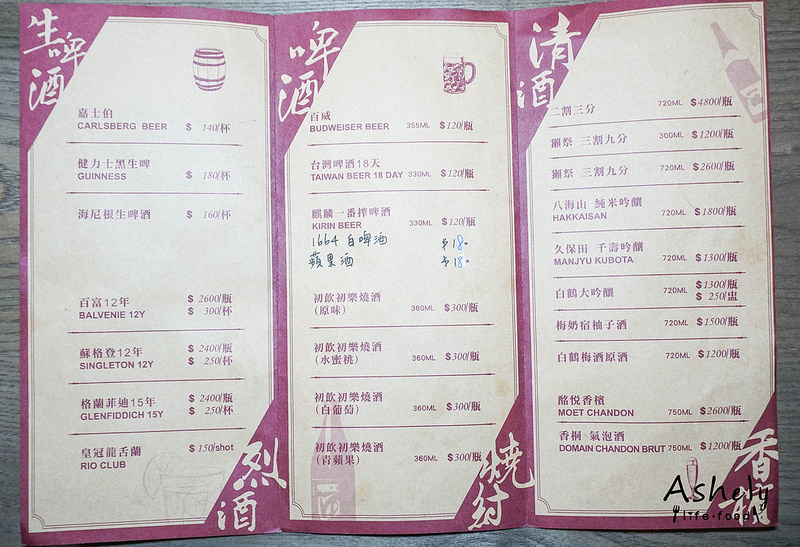 生啤酒
嘉士伯
CARLSBERG BEER $ 140/杯
健力士黑生啤
GUINNESS $ 180/杯
海尼根生啤酒 $ 160/杯
百富12年 $ 2600/瓶
BALVENIE 12Y $ 300/杯
蘇格登12年 $ 2400/瓶
SINGLETON 12Y $ 250/杯
格蘭菲迪15年 $ 2400/瓶
GLENFIDDICH 15Y $ 250/杯
皇冠龍舌蘭 $ 150/shot
RIO CLUB
烈酒
啤酒
百威
BUDWEISER BEER 355ML $120/瓶
台灣啤酒18天
TAIWAN BEER 18 DAY 330ML $120/瓶
麒麟一番搾啤酒
KIRIN BEER 330ML $120/瓶
1664 白啤酒 $180
蘋果酒 $180
初飲初樂燒酒
(原味) 360ML $300/瓶
初飲初樂燒酒
(水蜜桃) 360ML $300/瓶
初飲初樂燒酒
(白葡萄) 360ML $300/瓶
初飲初樂燒酒
(青蘋果) 360ML $300/瓶
燒酎
清酒
二割三分 720ML $4800/瓶
獺祭 三割九分 300ML $1200/瓶
獺祭 三割九分 720ML $2600/瓶
八海山 純米吟釀
HAKKAISAN 720ML $1800/瓶
久保田 千壽吟釀
MANJYU KUBOTA 720ML $1300/瓶
白鶴大吟釀 720ML $1300/瓶
$ 250/盅
梅奶宿柚子酒 720ML $1500/瓶
白鶴梅酒原酒 720ML $1200/瓶
酩悅香檳
MOET CHANDON 750ML $2600/瓶
香桐 氣泡酒
DOMAIN CHANDON BRUT 750ML $1200/瓶
香檳
Ashely
life·food